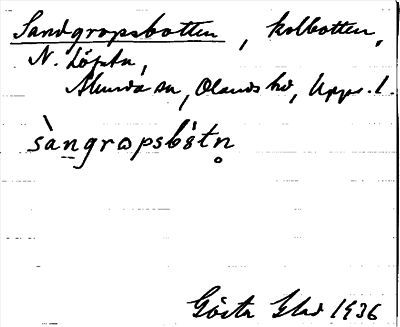 Sandgropsbotten, kolbotten,
N. Löpta,
Alunda sn, Olands hd, Upps. l.
sàngrɷpsbòtn̥
Gösta 1936